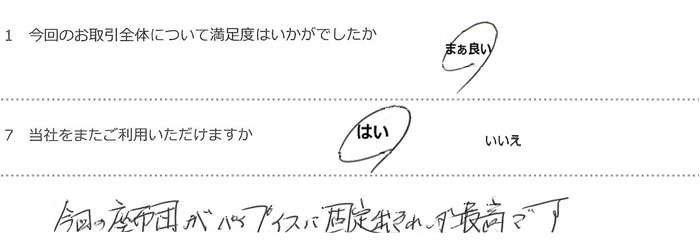 1 今回のお取引全体について満足度はいかがでしたか
まぁ良い
7 当社をまたご利用いただけますか
はい いいえ
今回の座布団がパイプイスに固定出来れば最高です